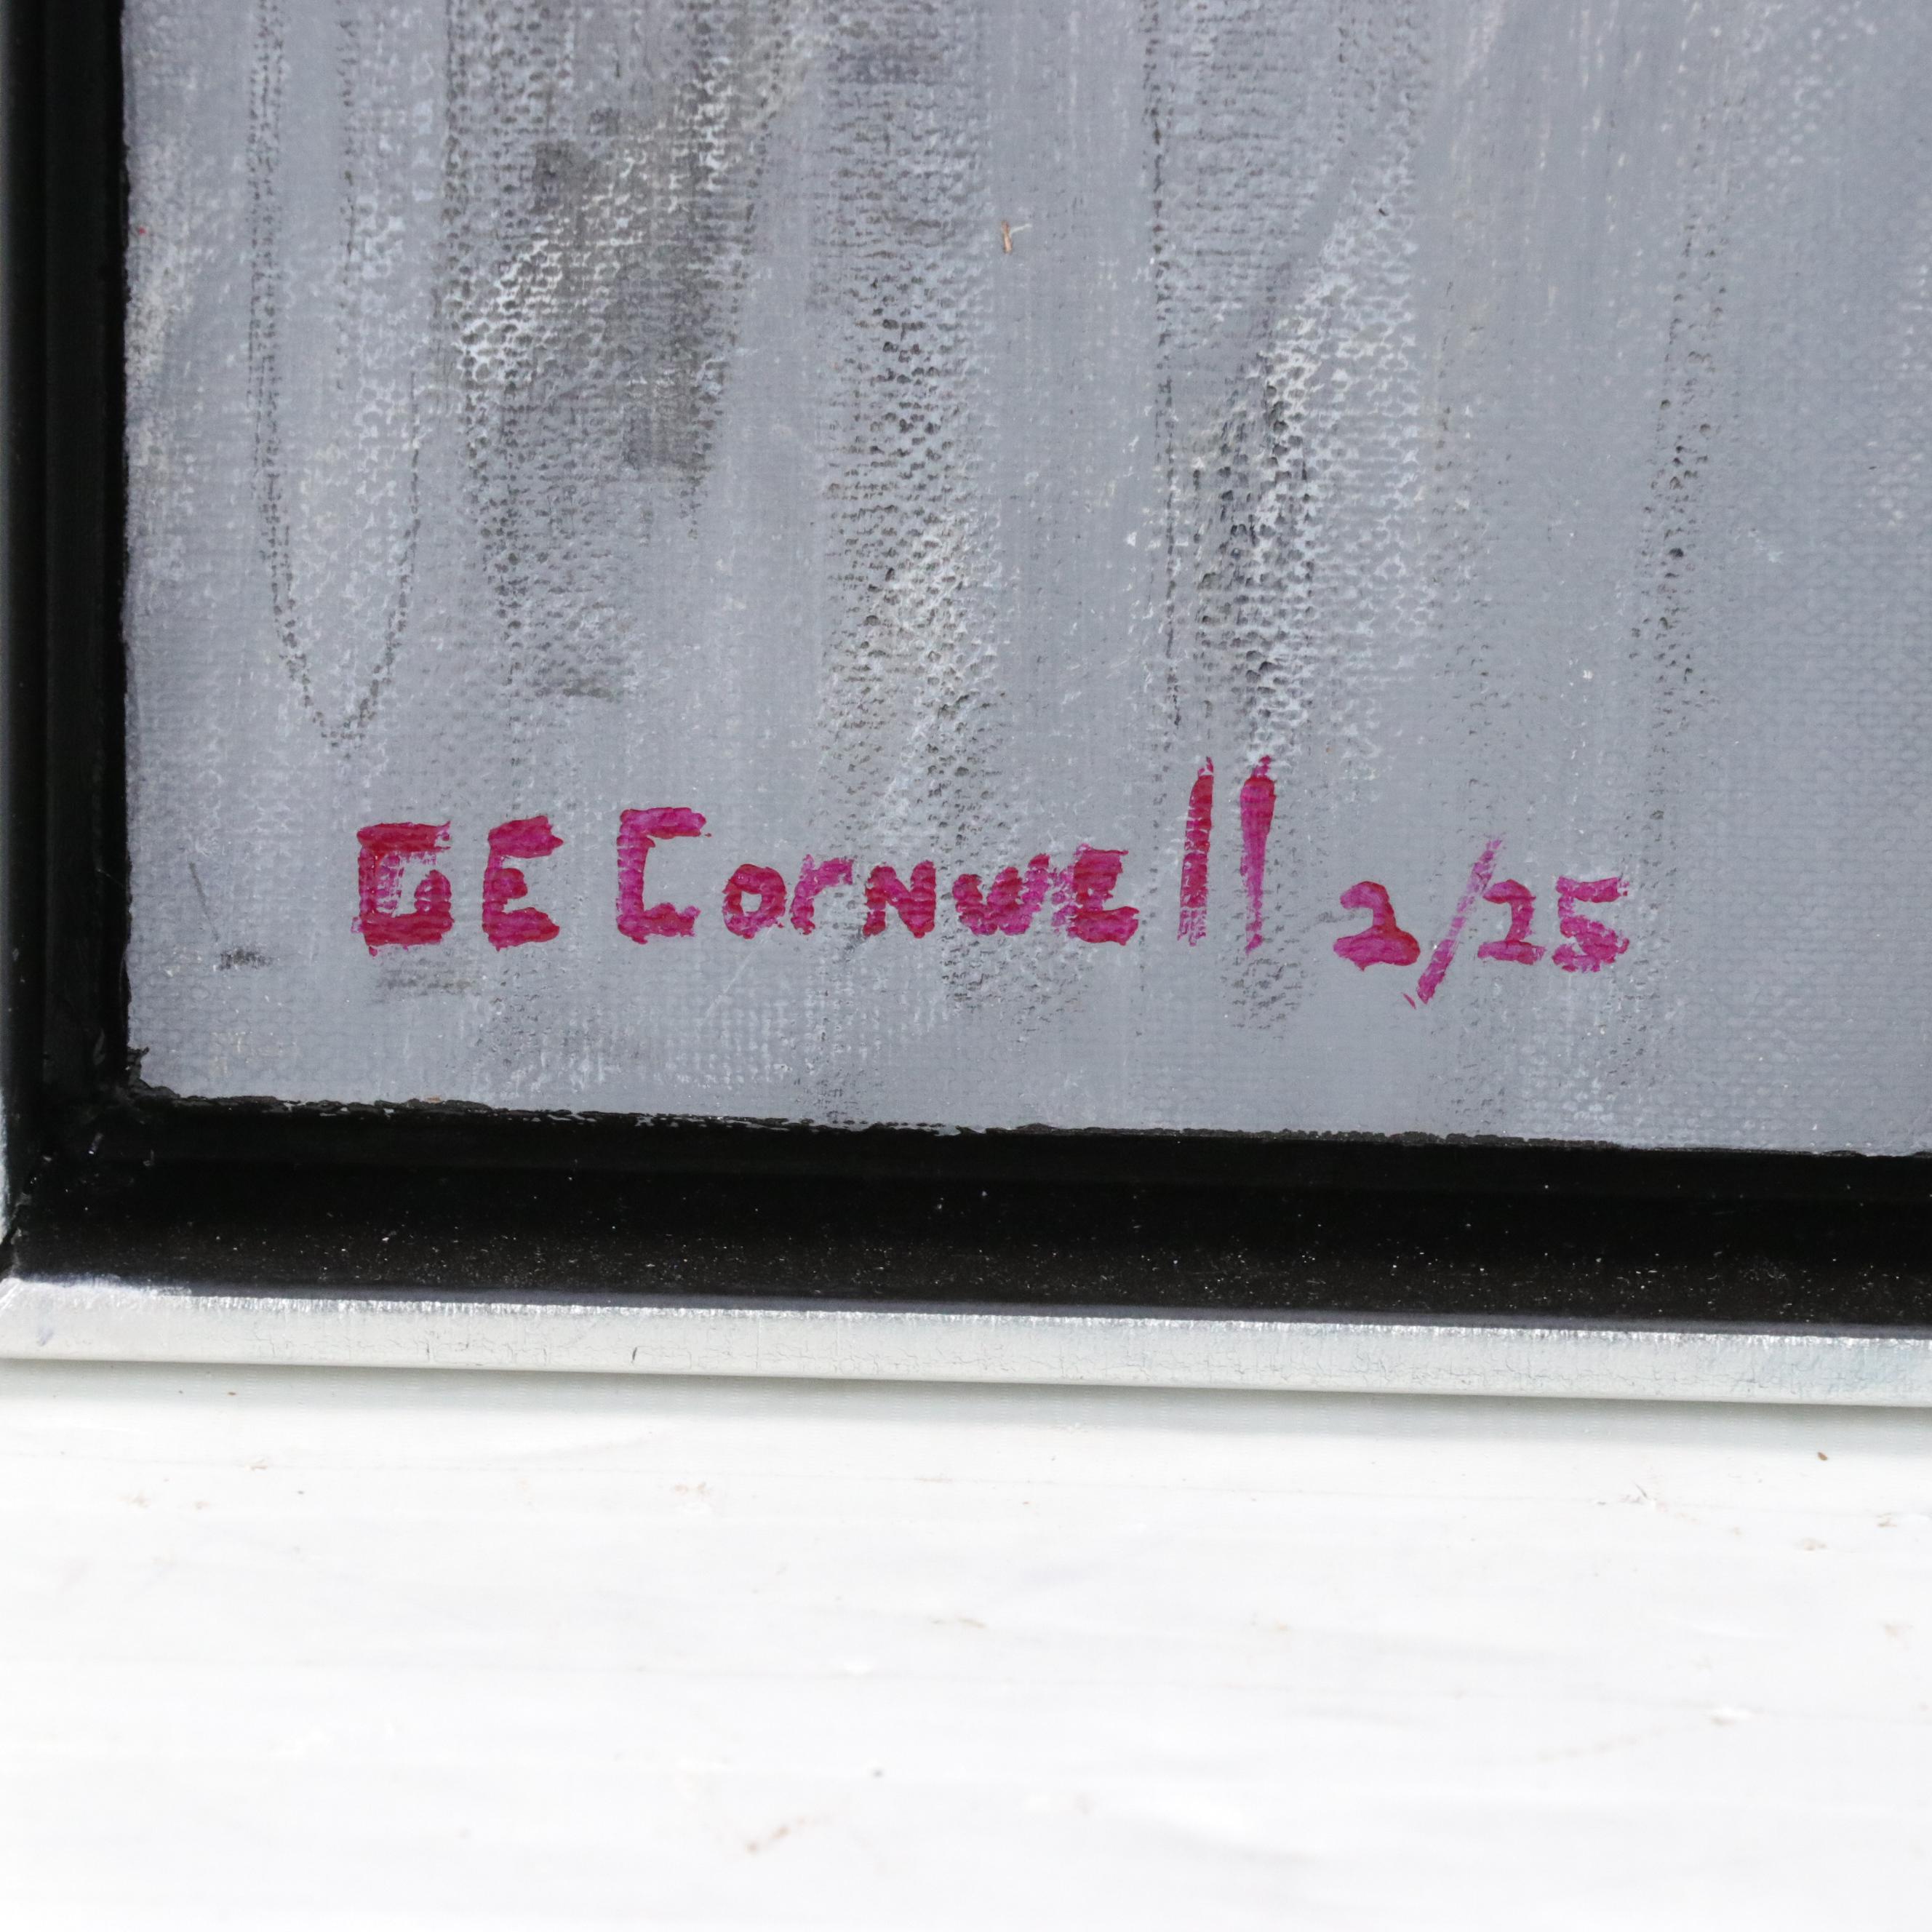 GE Cornwell 2/25